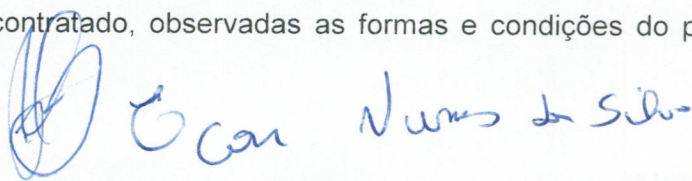 contratado, observadas as formas e condições do p
Nunes da Silva